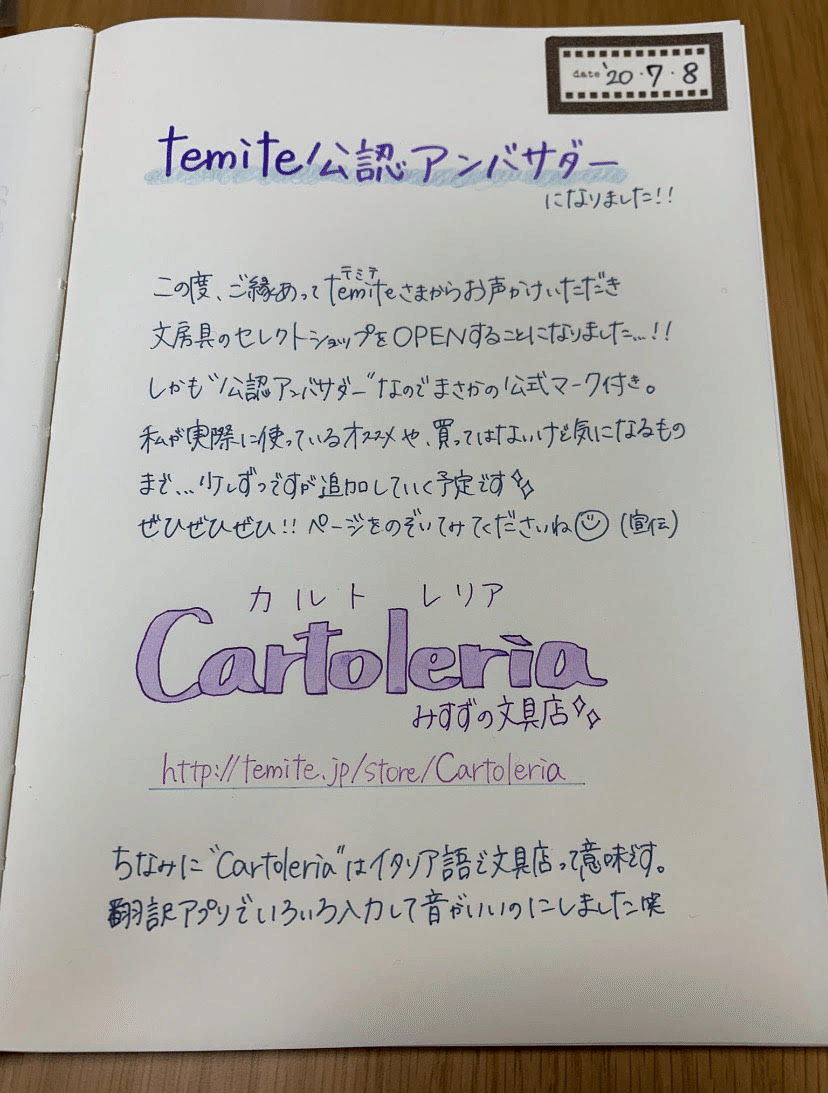 date '20・7・8
temite公認アンバサダー
になりました!!
テミテ
この度、ご縁あってtemiteさまからお声がけいただき
文房具のセレクトショップをOPENすることになりました…!!
しかも"公認アンバサダー"なのでまさかの公式マーク付き。
私が実際に使っているオススメや、買ってはないけど気になるもの
まで…少しずつですが追加していく予定です
ぜひぜひぜひ!! ページをのぞいてみてくださいね☺(宣伝)
カルト レリア
Cartoleria
みすずの文具店
http://temite.jp/store/Cartoleria
ちなみに"Cartoleria"はイタリア語で文具店って意味です。
翻訳アプリでいろいろ入力して音がいいのにしました笑